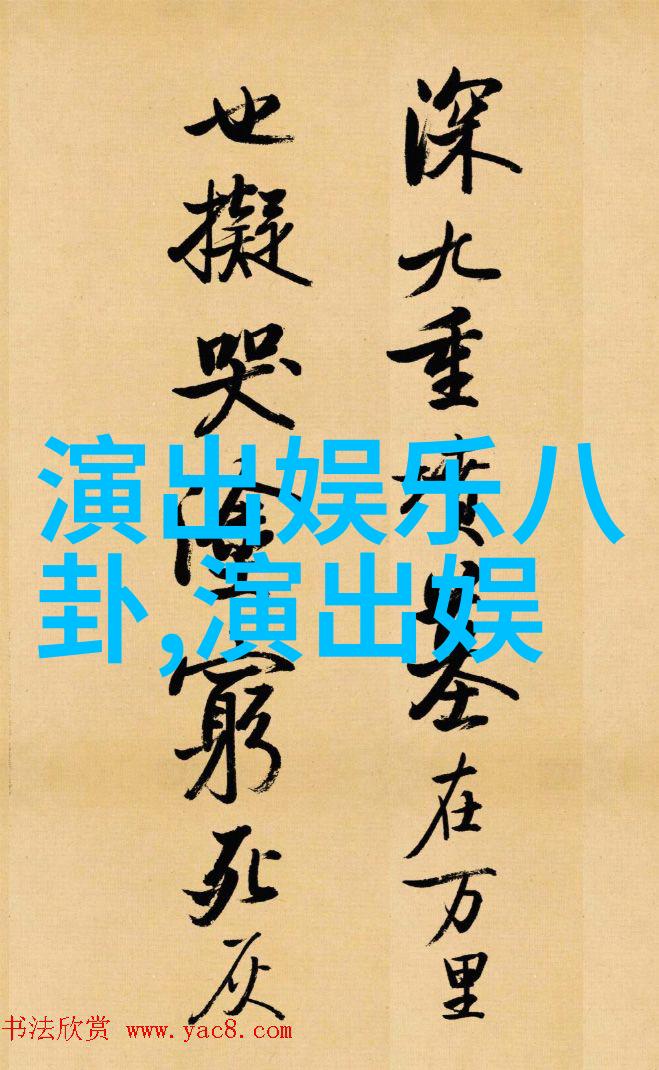 深九重墳墓在万里
也擬哭塗窮死灰
演出娱乐八
卦,演出娱
书法欣赏 www.yac8.com